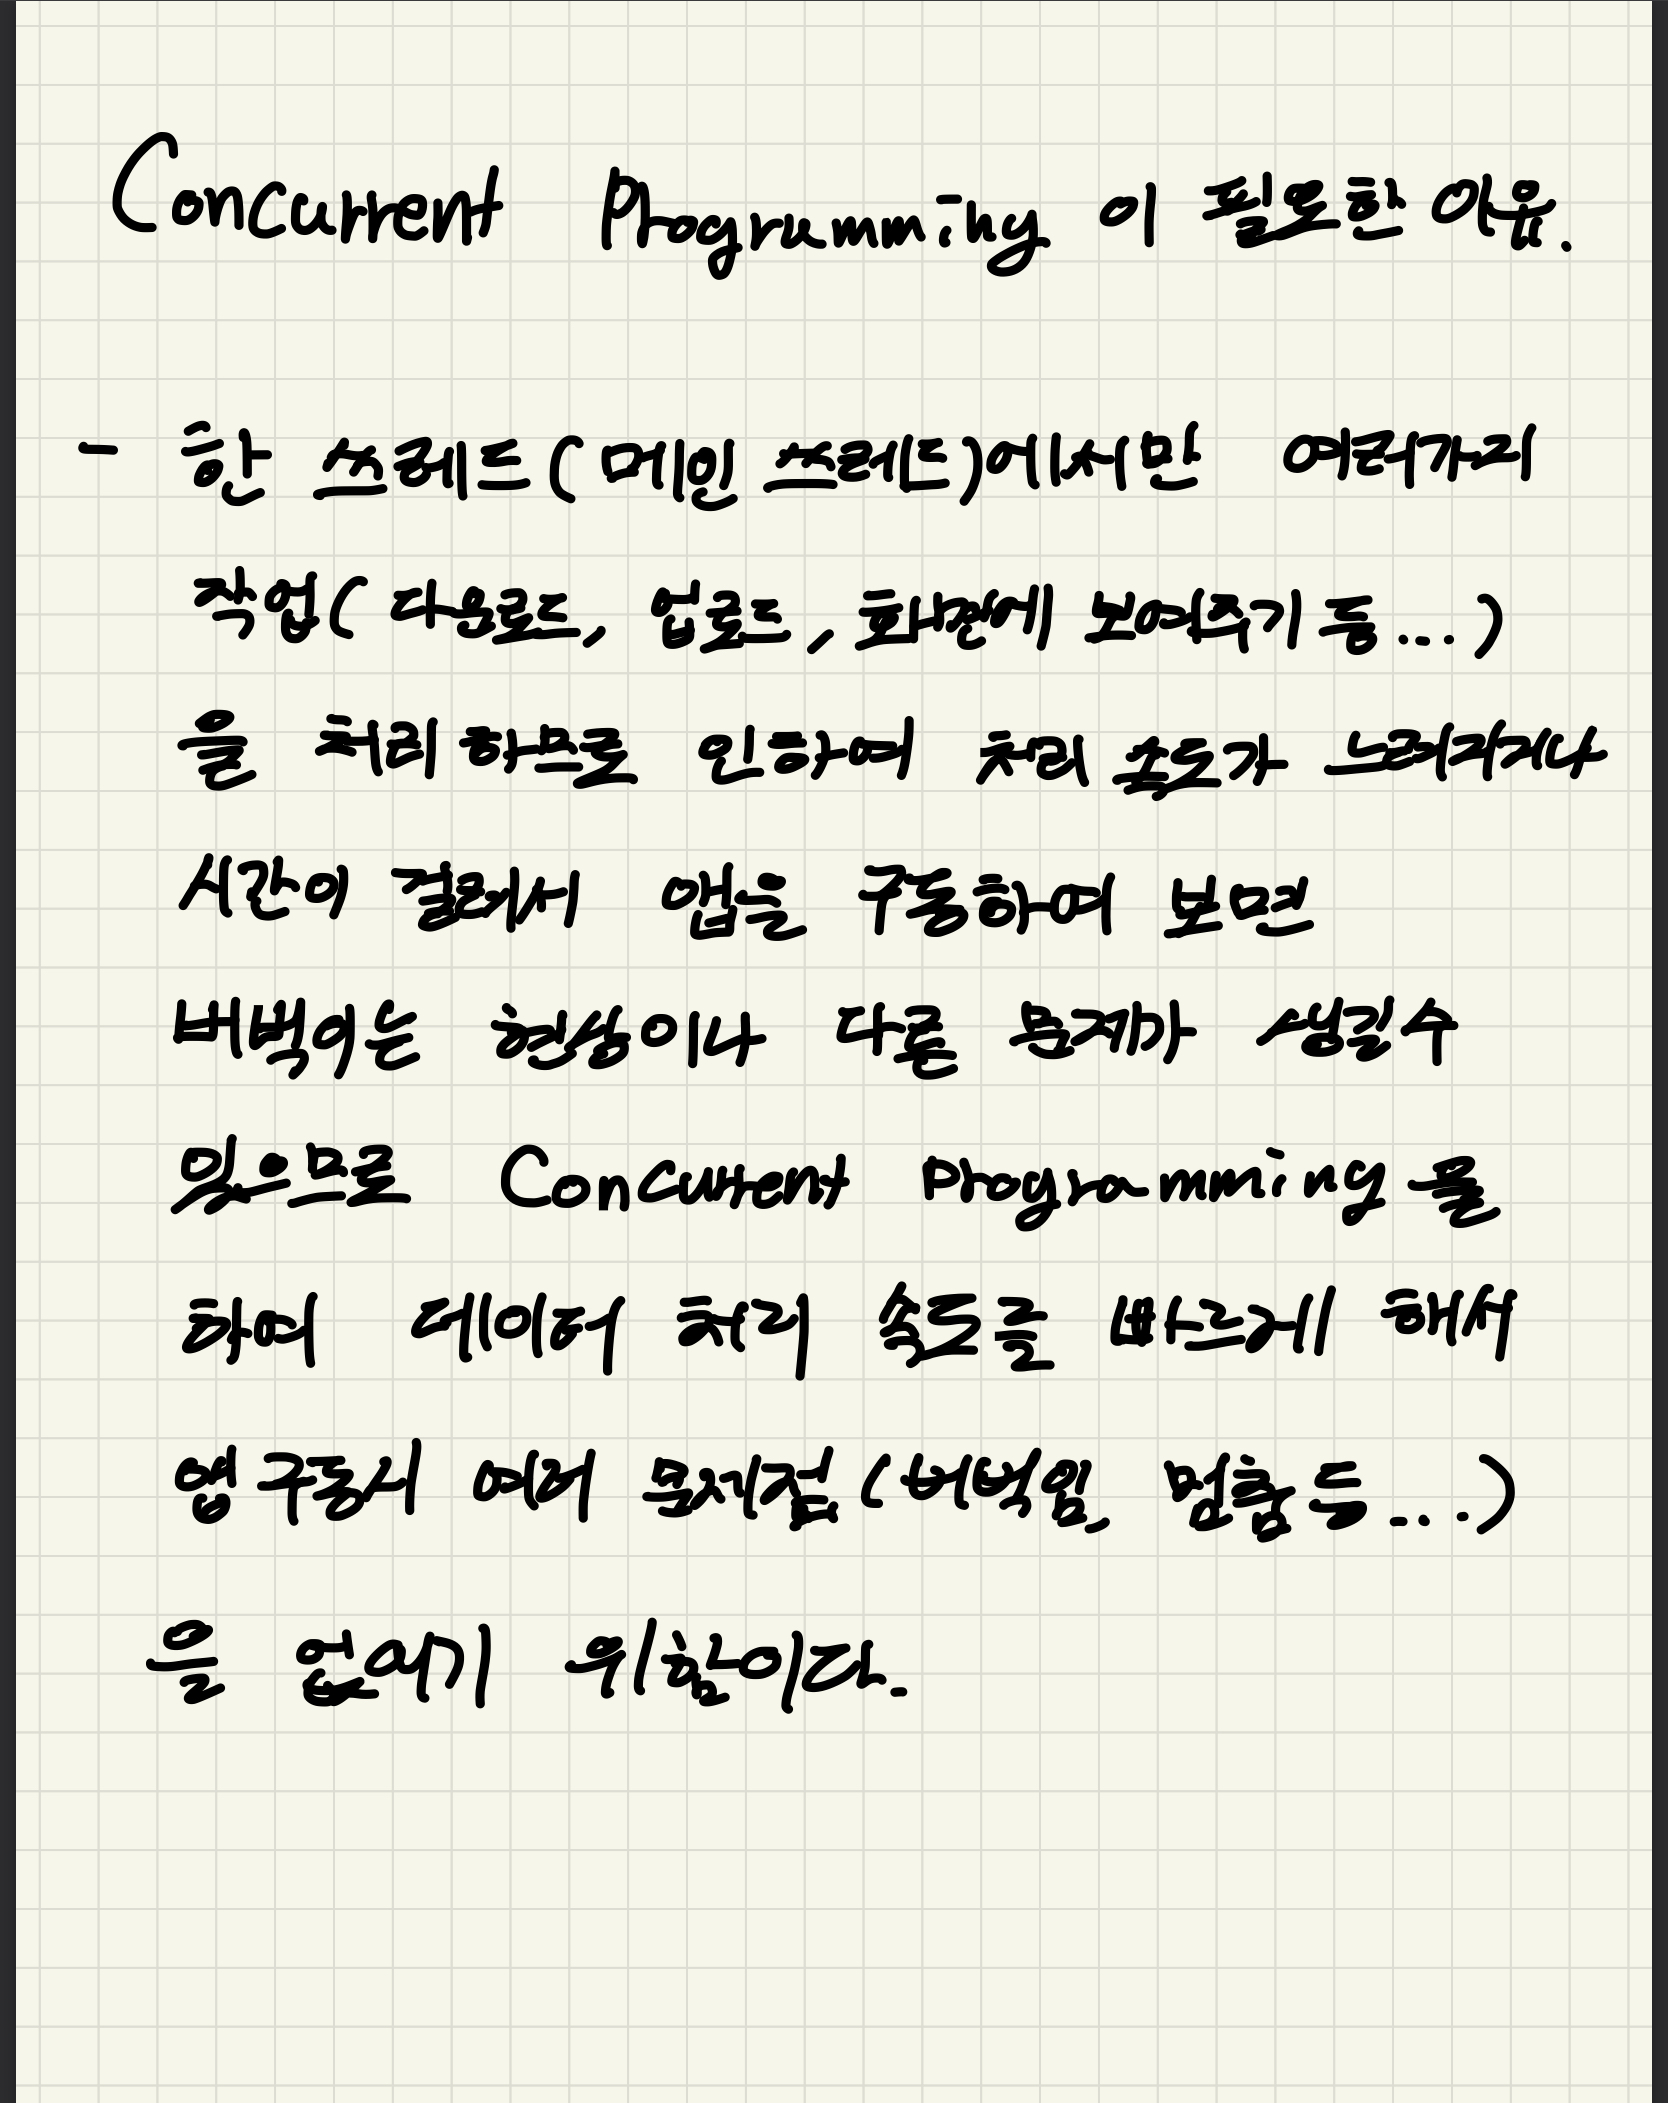 Concurrent Programming 이 필요한 이유.
- 한 쓰레드(메인 쓰레드)에서만 여러가지
작업(다운로드, 업로드, 화면에 보여주기 등...)
을 처리하므로 인하여 처리 속도가 느려지거나
시간이 걸려서 앱을 구동하여 보면
버벅이는 현상이나 다른 문제가 생길수
있으므로 Concurrent Programming 을
하여 데이터 처리 속도를 빠르게 해서
앱 구동시 여러 문제점(버벅임, 멈춤 등...)
을 없애기 위함이다.